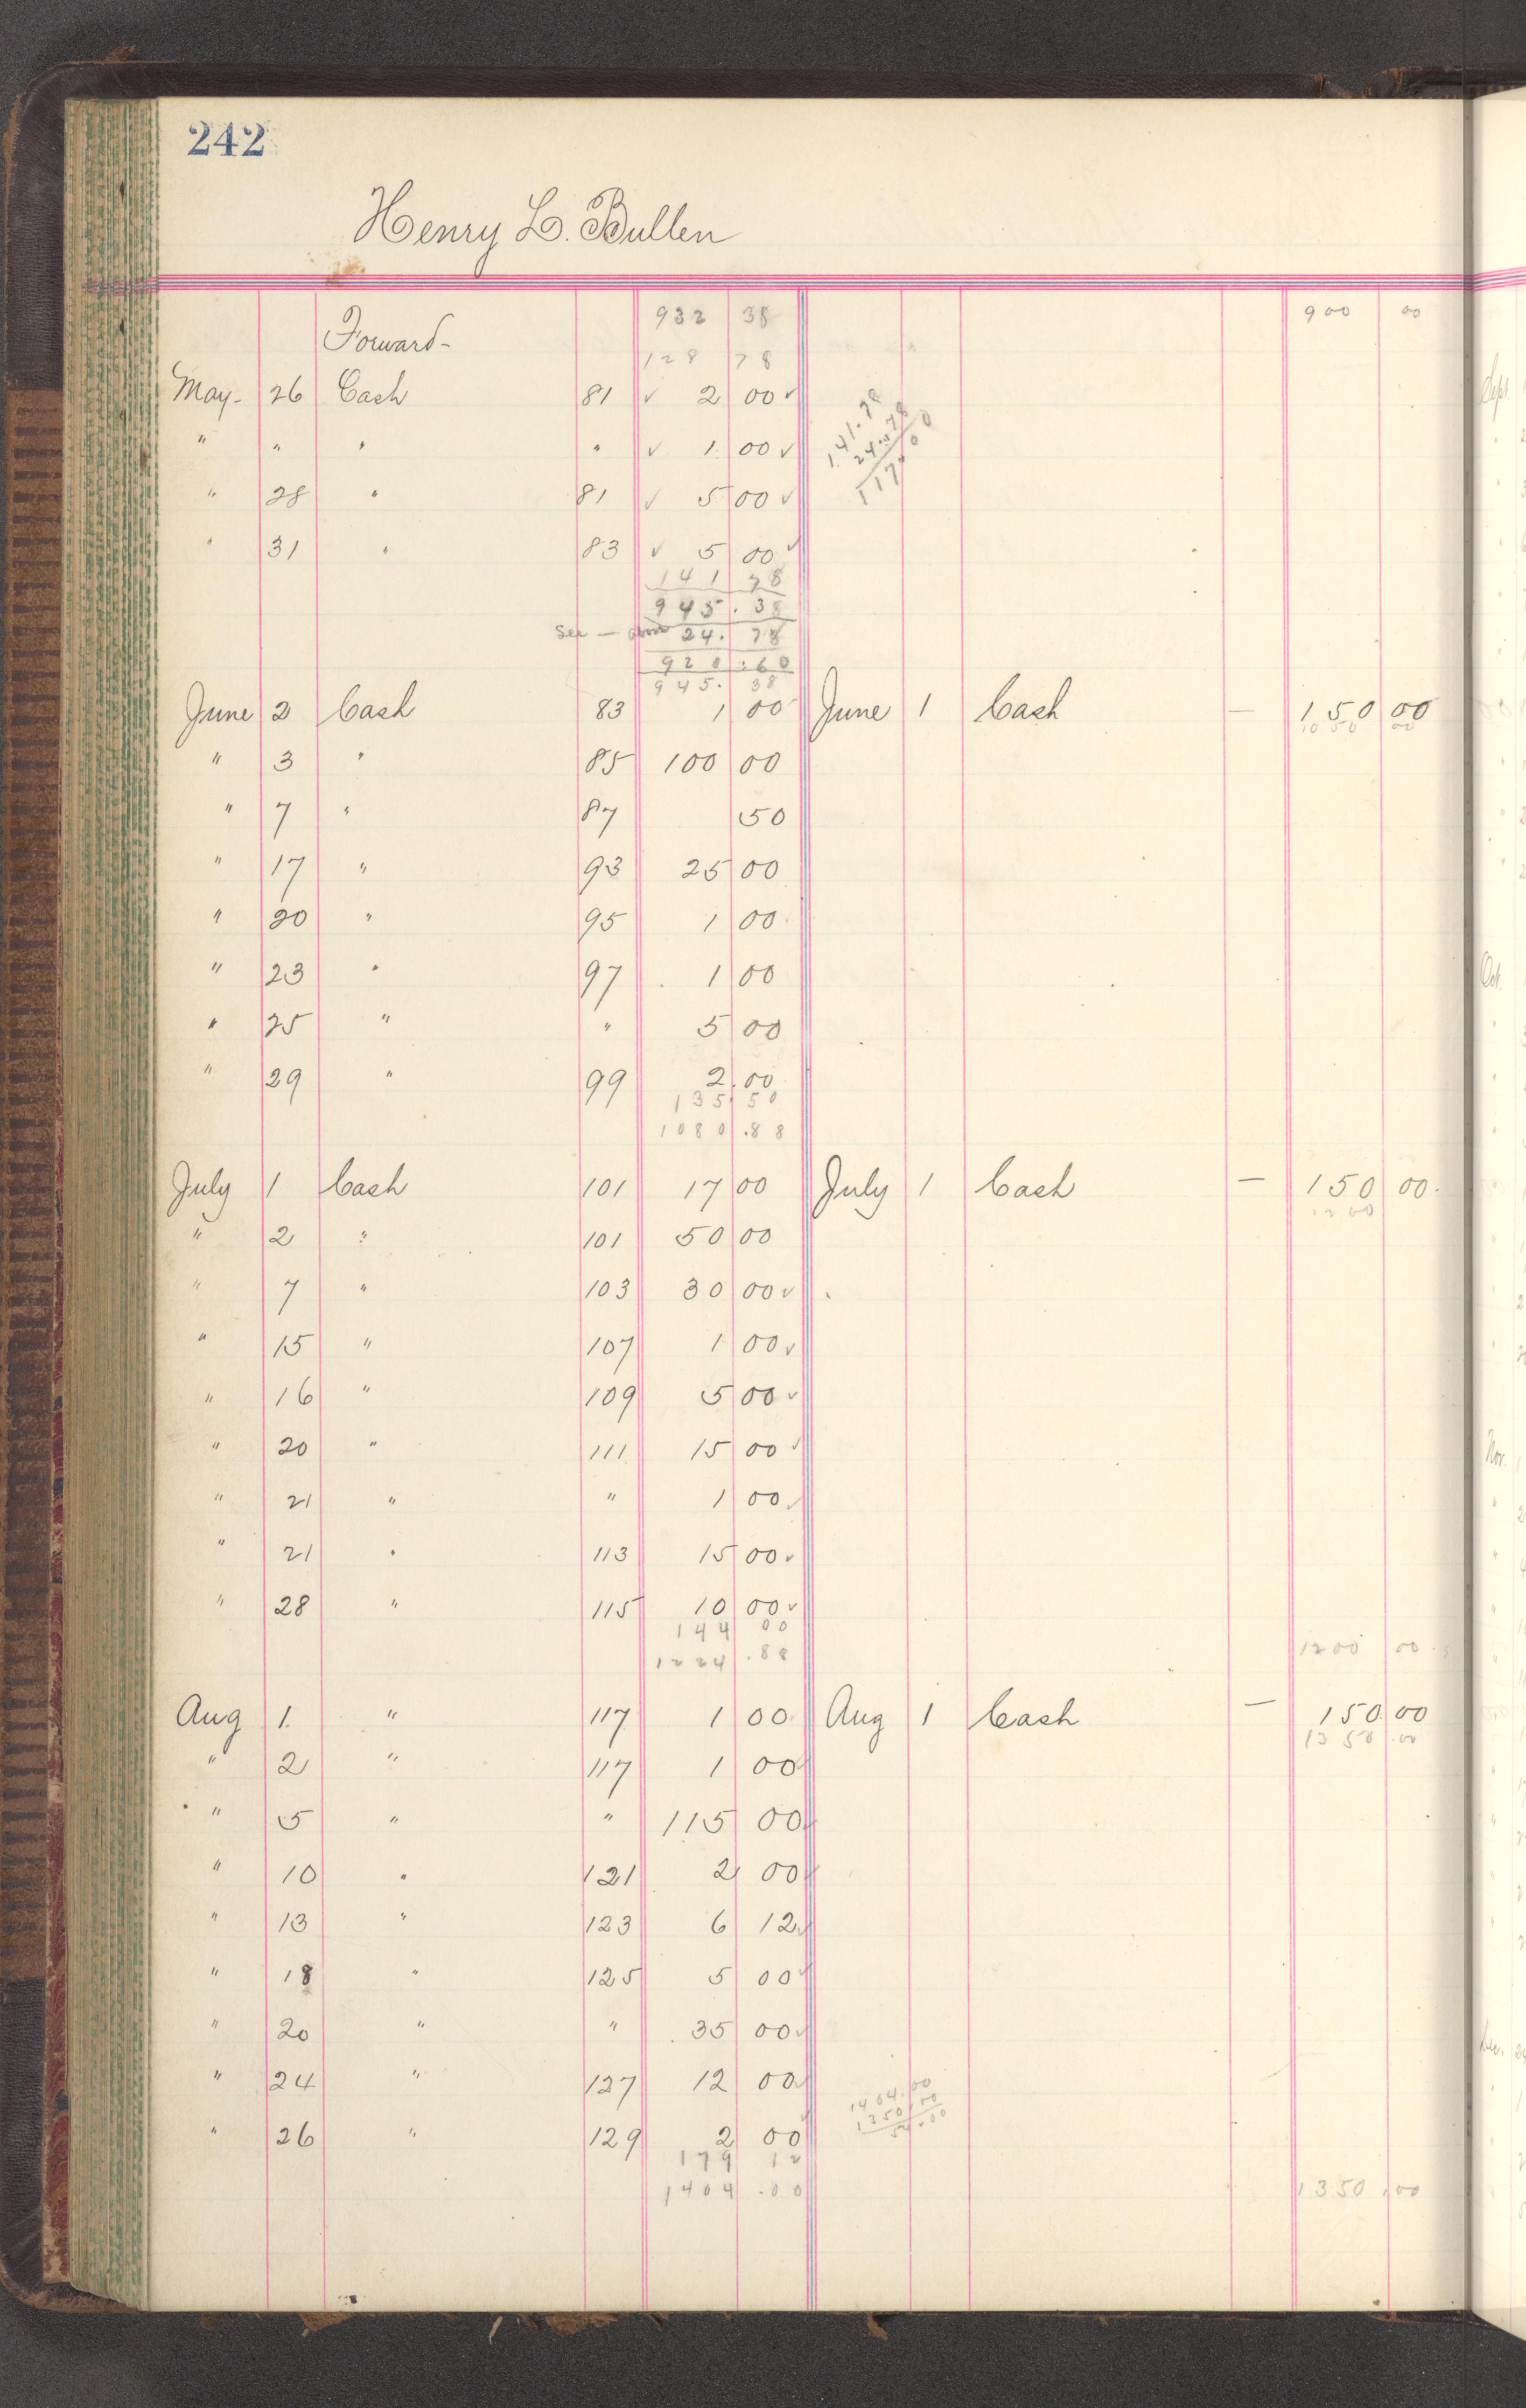 242
Henry L. Bullen
Forward- 932 38 900 00
128 78
May- 26 Cash 81 ✓ 2 00 ✓
" " " " ✓ 1 00 ✓
" 28 " 81 ✓ 5 00 ✓
" 31 " 83 ✓ 5 00 ✓
141.78
24.78
117.00
141 78
945.38
See — 24.78
920.60
945.38
June 2 Cash 83 1 00 June 1 Cash — 150 00
1050 00
" 3 " 85 100 00
" 7 " 87 50
" 17 " 93 25 00
" 20 " 95 1 00
" 23 " 97 1 00
" 25 " " 5 00
" 29 " 99 2.00
135 50
1080.88
July 1 Cash 101 17 00 July 1 Cash — 150 00
1200
" 2 " 101 50 00
" 7 " 103 30 00 ✓
" 15 " 107 1 00 ✓
" 16 " 109 5 00 ✓
" 20 " 111 15 00 ✓
" 21 " " 1 00 ✓
" 21 " 113 15 00 ✓
" 28 " 115 10 00 ✓
144 00
1224.88 1200 00
Aug 1 " 117 1 00 Aug 1 Cash — 150 00
1350.00
" 2 " 117 1 00 ✓
" 5 " " 115 00 ✓
" 10 " 121 2 00 ✓
" 13 " 123 6 12 ✓
" 18 " 125 5 00 ✓
" 20 " " 35 00 ✓
" 24 " 127 12 00 ✓
" 26 " 129 2 00 ✓
1404.00
1350.00
54.00
179 12
1404.00 1350.00
Sept
Oct.
Nov.
Dec.